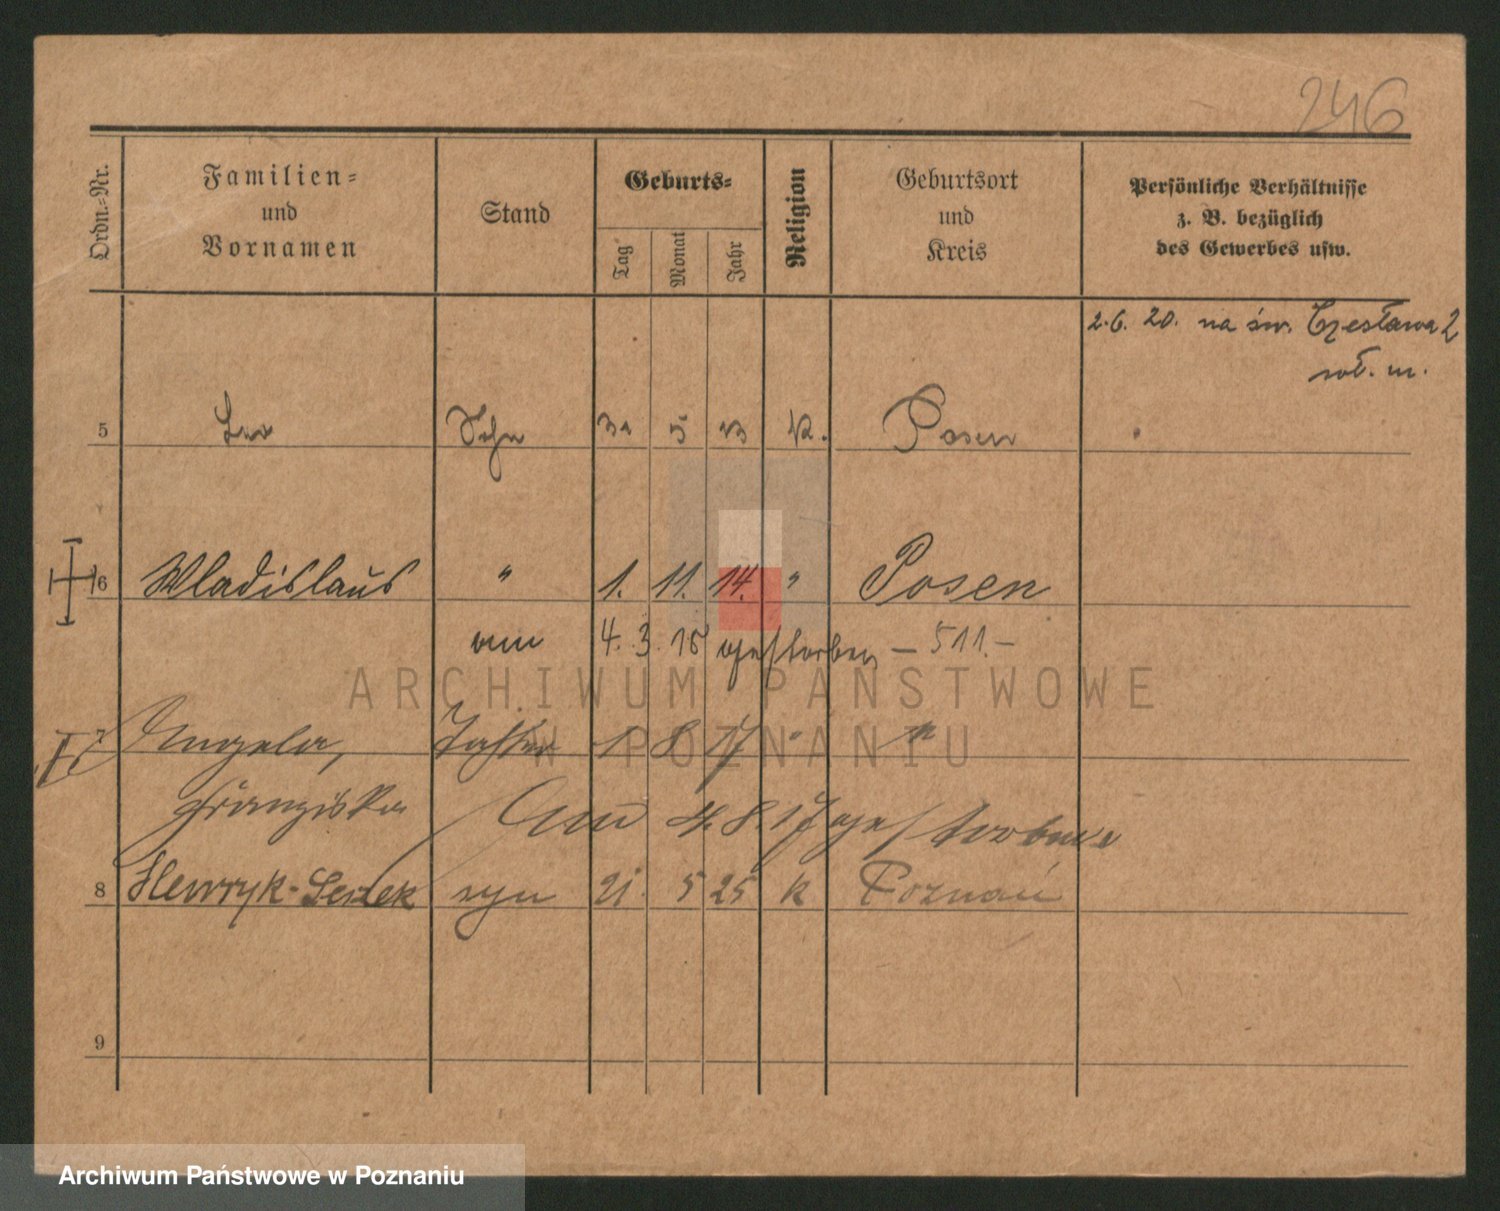 246
Ordn.-Nr.
Familien-
und
Vornamen
Stand
Geburts-
Tag
Monat
Jahr
Religion
Geburtsort
und
Kreis
Persönliche Verhältnisse
z. B. bezüglich
des Gewerbes usw.
2.6. 20. na św. Czesława 2
m.
5 Leo Sohn 5 13 K. Posen
6 Wladislaus " 1. 11. 14. " Posen
am 4. 3. 15 gestorben – 511. –
7 Angela, Tochter 1 8 17 " "
Franziska Am 4. 8. 17 gestorben
8 Henryk-Leszek syn 21. 5 25 k Poznań
9
ARCHIWUM PAŃSTWOWE
W POZNANIU
Archiwum Państwowe w Poznaniu